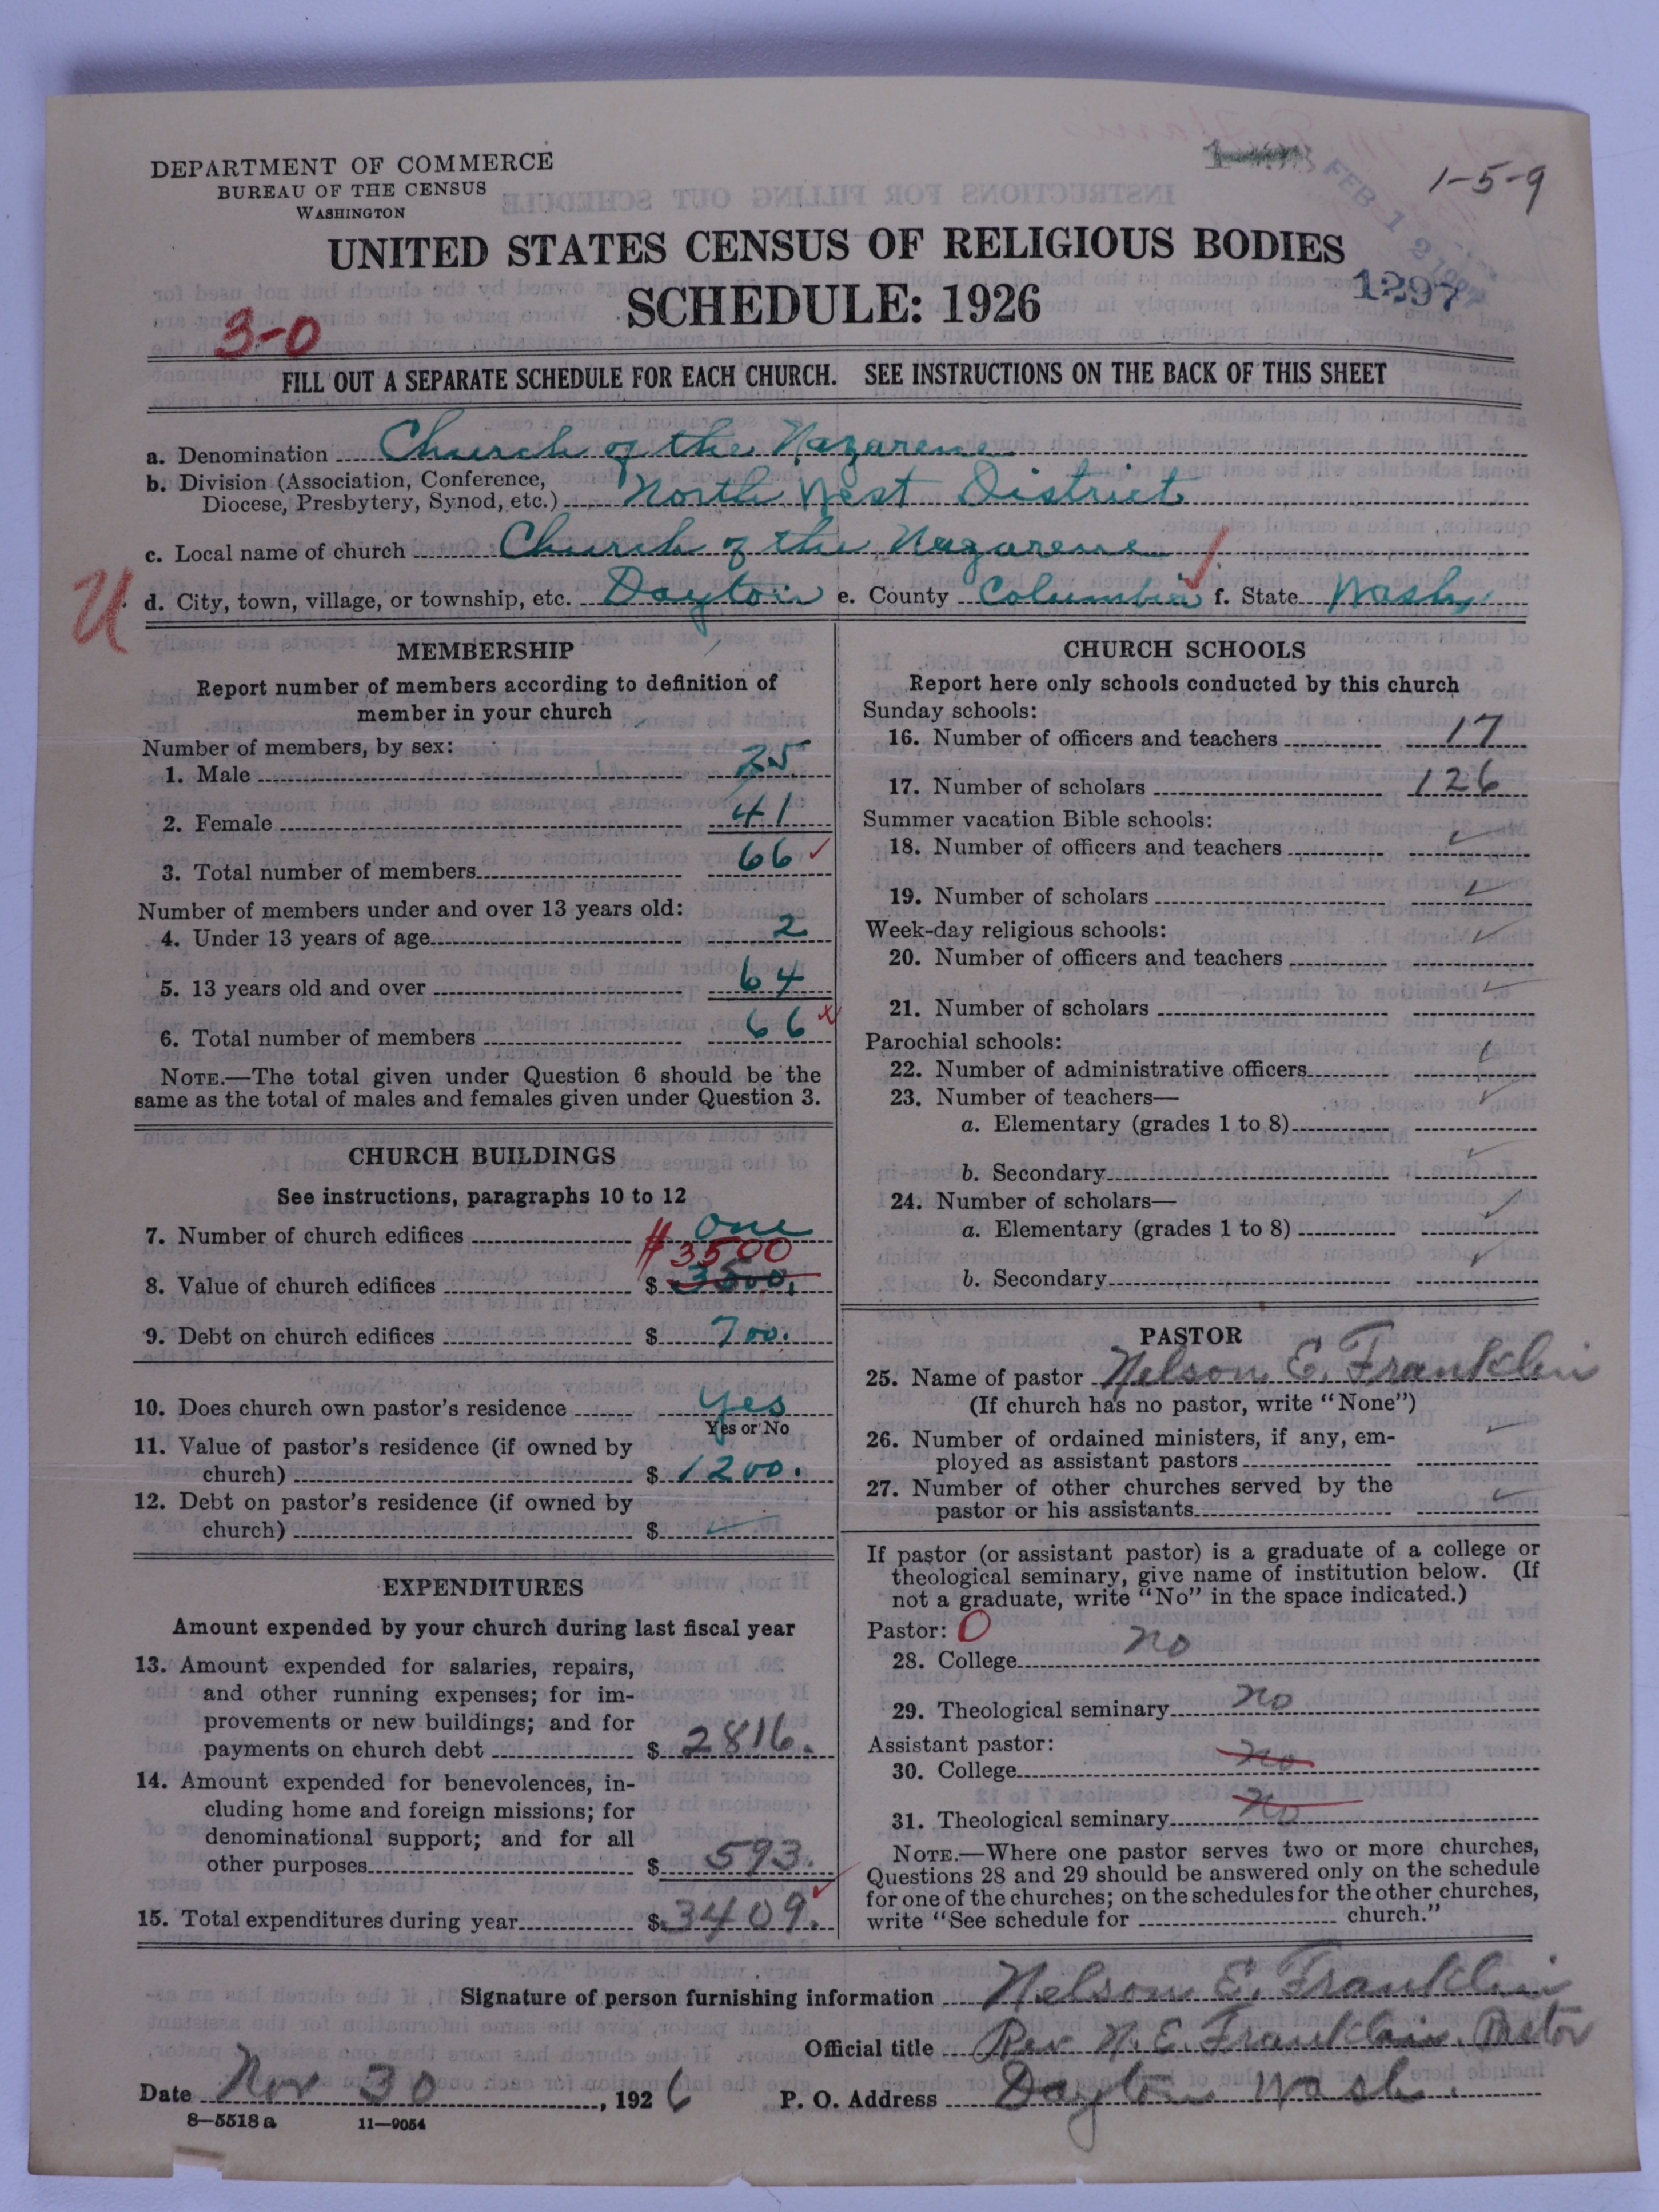 DEPARTMENT OF COMMERCE
BUREAU OF THE CENSUS
WASHINGTON
1-5-9
UNITED STATES CENSUS OF RELIGIOUS BODIES
SCHEDULE: 1926
1297
3-0
FILL OUT A SEPARATE SCHEDULE FOR EACH CHURCH. SEE INSTRUCTIONS ON THE BACK OF THIS SHEET
a. Denomination Church of the Nazarene
b. Division (Association, Conference,
Diocese, Presbytery, Synod, etc.) North West District
c. Local name of church Church of the Nazarene
U
d. City, town, village, or township, etc. Dayton e. County Columbia f. State Wash
MEMBERSHIP
Report number of members according to definition of
member in your church
Number of members, by sex:
1. Male 25
2. Female 41
3. Total number of members 66
Number of members under and over 13 years old:
4. Under 13 years of age 2
5. 13 years old and over 64
6. Total number of members 66
NOTE.—The total given under Question 6 should be the
same as the total of males and females given under Question 3.
CHURCH BUILDINGS
See instructions, paragraphs 10 to 12
7. Number of church edifices One
$3500
8. Value of church edifices $ 3500.
9. Debt on church edifices $ 700.
10. Does church own pastor's residence yes
Yes or No
11. Value of pastor's residence (if owned by
church) $ 1200.
12. Debt on pastor's residence (if owned by
church) $
EXPENDITURES
Amount expended by your church during last fiscal year
13. Amount expended for salaries, repairs,
and other running expenses; for im-
provements or new buildings; and for
payments on church debt $ 2816.
14. Amount expended for benevolences, in-
cluding home and foreign missions; for
denominational support; and for all
other purposes $ 593.
15. Total expenditures during year $ 3409.
CHURCH SCHOOLS
Report here only schools conducted by this church
Sunday schools:
16. Number of officers and teachers 17
17. Number of scholars 126
Summer vacation Bible schools:
18. Number of officers and teachers
19. Number of scholars
Week-day religious schools:
20. Number of officers and teachers
21. Number of scholars
Parochial schools:
22. Number of administrative officers
23. Number of teachers—
a. Elementary (grades 1 to 8)
b. Secondary
24. Number of scholars—
a. Elementary (grades 1 to 8)
b. Secondary
PASTOR
25. Name of pastor Nelson E. Franklin
(If church has no pastor, write "None")
26. Number of ordained ministers, if any, em-
ployed as assistant pastors
27. Number of other churches served by the
pastor or his assistants
If pastor (or assistant pastor) is a graduate of a college or
theological seminary, give name of institution below. (If
not a graduate, write "No" in the space indicated.)
Pastor: 0
28. College no
29. Theological seminary no
Assistant pastor:
30. College no
31. Theological seminary no
NOTE.—Where one pastor serves two or more churches,
Questions 28 and 29 should be answered only on the schedule
for one of the churches; on the schedules for the other churches,
write "See schedule for church."
Signature of person furnishing information Nelson E. Franklin
Official title Rev N. E. Franklin. Pastor
Date Nov 30, 1926 P. O. Address Dayton Wash.
8—5518 a 11—9054